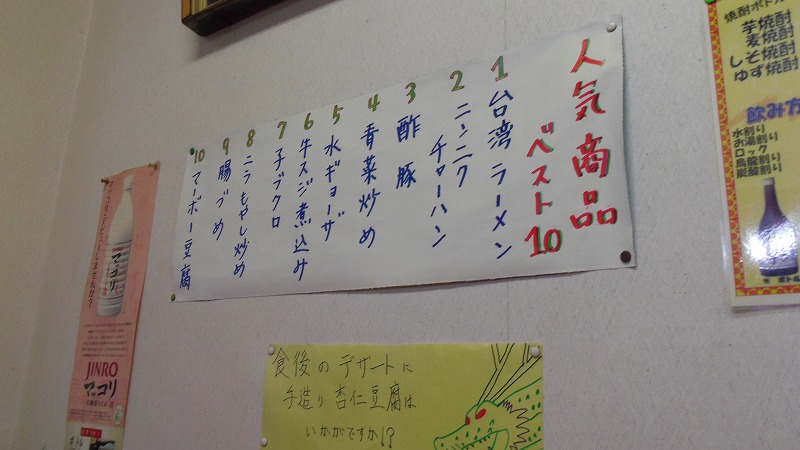 人気商品
ベスト10
1 台湾ラーメン
2 ニンニクチャーハン
3 酢豚
4 青菜炒め
5 水ギョーザ
6 牛スジ煮込み
7 子ブクロ
8 ニラもやし炒め
9 腸づめ
10 マーボー豆腐
食後のデザートに
手造り杏仁豆腐は
いかがですか!?
焼酎ボトル
芋焼酎
麦焼酎
しそ焼酎
ゆず焼酎
飲み方
水割り
お湯割り
ロック
烏龍割り
炭酸割り
マッコリ
JINRO
マッコリ